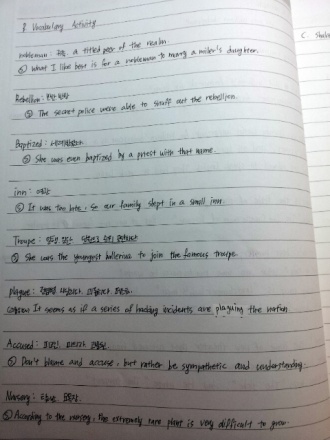 B Vocabulary Activity
nobleman : 귀족, a titled peer of the realm.
② What I like best is for a nobleman to marry a miller's daughter.
Rebellion : 반란
② The secret police were able to snuff out the rebellion.
Baptized :
② She was even baptized by a priest with that name.
inn : 여관
② It was too late, so our family slept in a small inn.
Troupe :
② She was the youngest ballerina to join the famous troupe.
plague :
It seems as if a series of hacking incidents are plaguing the nation
Accused :
② Don't blame and accuse, but rather be sympathetic and understanding.
Nursery :
② According to the nursery, the extremely rare plant is very difficult to grow.
C.